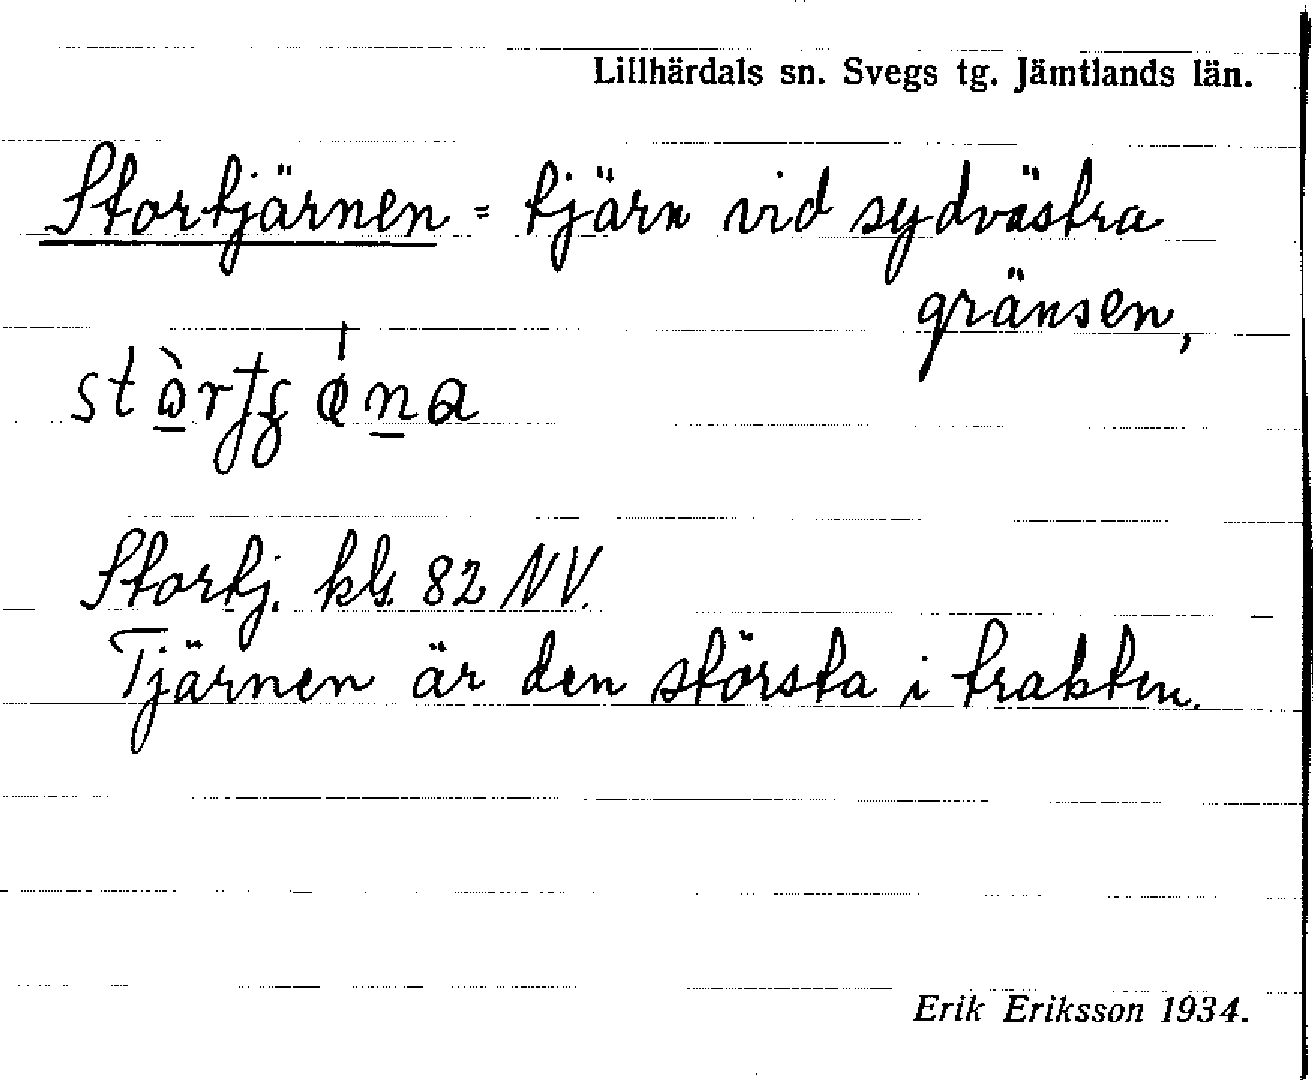 Lillhärdals sn. Svegs tg. Jämtlands län.
Stortjärnen = tjärn vid sydvästra
gränsen,
Stortj. kbl. 82 NV.
Tjärnen är den största i trakten.
Erik Eriksson 1934.